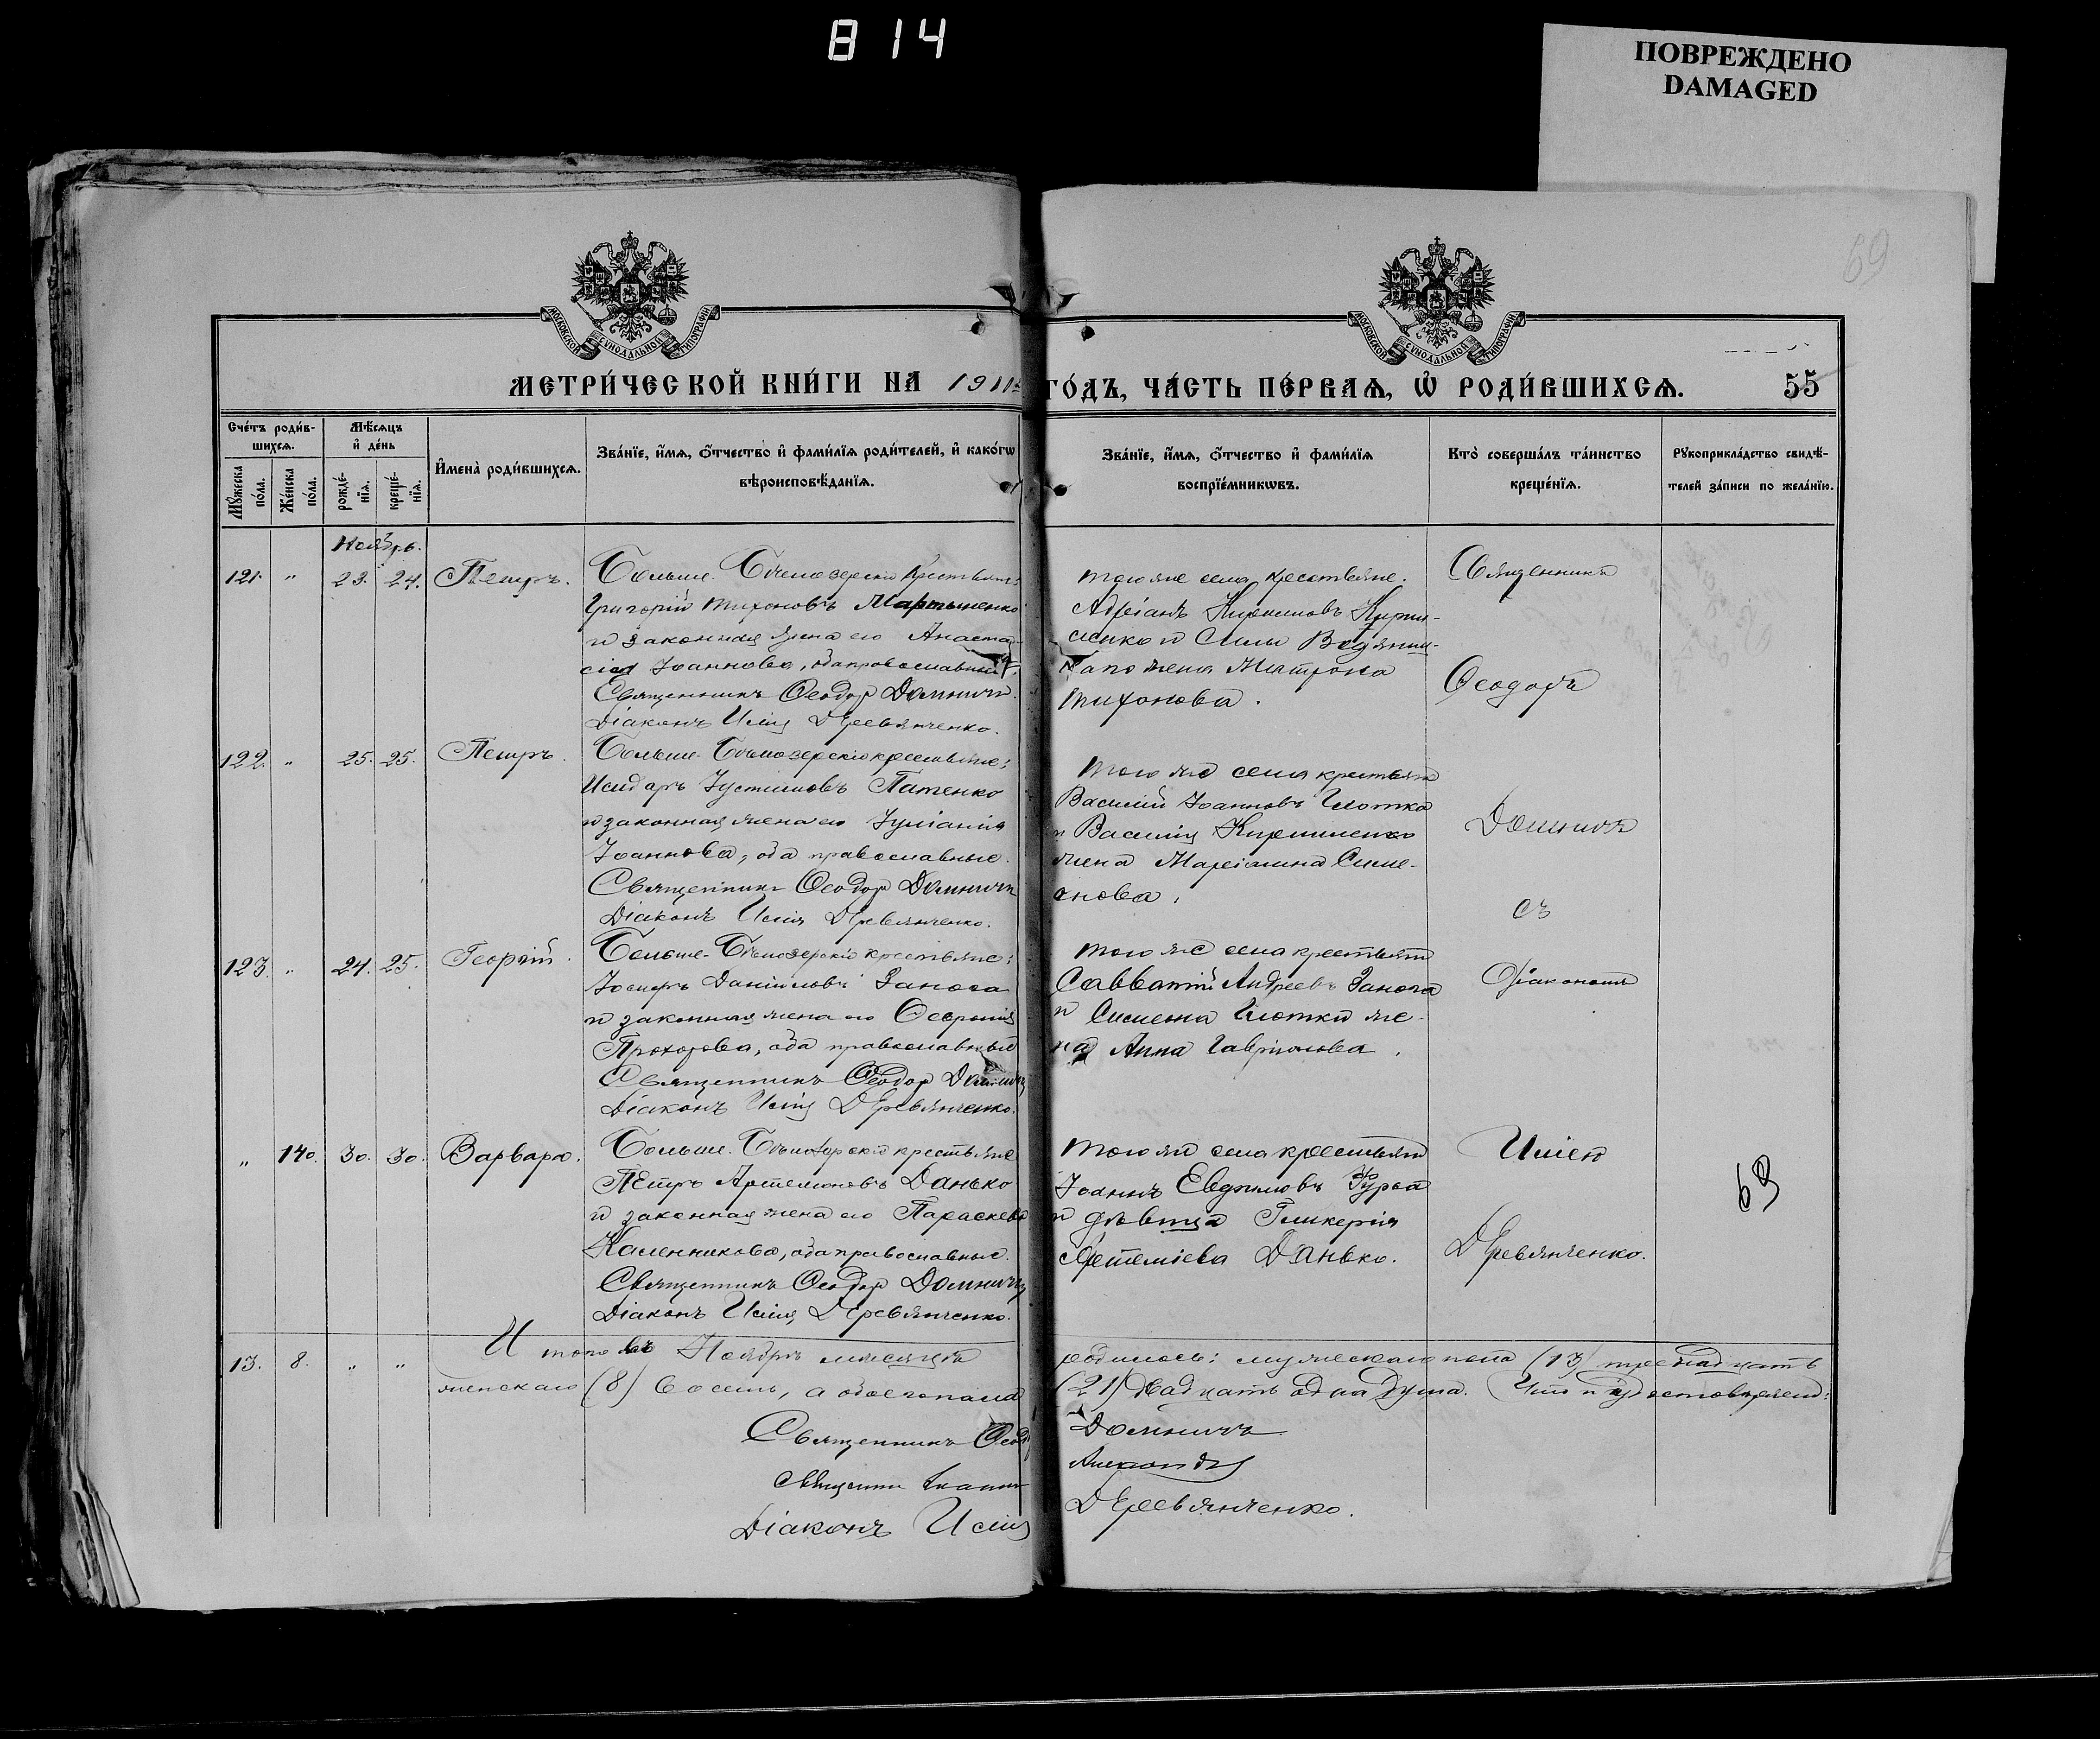 814
ПОВРЕЖДЕНО
DAMAGED
69
МОСКОВСКОЙ СѴНОДАЛЬНОЙ ТИПОГРАФІИ
МОСКОВСКОЙ СѴНОДАЛЬНОЙ ТИПОГРАФІИ
МЕТРИ́ЧЕСКОЙ КНИ́ГИ НА 1911 ГО́ДЪ, ЧА́СТЬ ПЕ́РВАѦ, Ѡ҆ РОДИ́ВШИХСѦ. 55
Сче́тъ роди́в-
шихсѧ.
Мѣ́сѧцъ
и҆ де́нь
Мꙋ́жеска по́ла.
Же́нска по́ла.
рожде́-нїѧ.
креще́-нїѧ.
И҆мена̀ роди́вшихсѧ.
Зва́нїе, и҆́мѧ, ѻ҆́тчество и҆ фами́лїѧ роди́телей, и҆ како́гѡ
вѣроисповѣ́данїѧ.
Зва́нїе, и҆́мѧ, ѻ҆́тчество и҆ фами́лїѧ
воспрїе́мникѡвъ.
Кто̀ соверша́лъ та́инство
креще́нїѧ.
Рꙋкоприкла́дство свидѣ́-
телей за́писи по жела́нїю.
Ноябрь.
121. " 23. 24. Петръ.
Больше-Бѣлозерскіе крестьяне:
Григорій Тихоновъ Мартыненко
и законная жена его Анаста-
сія Іоаннова, оба православные.
Священникъ Ѳеодоръ Домничъ.
Діаконъ Илія Деревянченко.
того же села крестьяне.
Адріанъ Кирилловъ Кири-
ленко и Силы Водяни-
жена Матрона
Тихонова.
Священникъ
Ѳеодоръ
122. " 25. 25. Петръ.
Больше-Бѣлозерскіе крестьяне:
Исидоръ Іустиновъ Патенко
и законная жена его Іуліанія
Іоаннова, оба православные.
Священникъ Ѳеодоръ Домничъ
Діаконъ Илія Деревянченко.
того же села крестьяне
Василій Іоанновъ
и Василія Кириленко
жена Маріамна Симе-
онова.
Домничъ
съ
123. " 24. 25. Георгій.
Больше-Бѣлозерскіе крестьяне:
Іосифъ Даніиловъ Заноза
и законная жена его Ѳевронія
Прохорова, оба православные
Священникъ Ѳеодоръ Домничъ
Діаконъ Илія Деревянченко.
того же села крестьяне
Савватій Андреевъ Заноза
и Симеона же-
на Анна Гавріилова.
Діакономъ
" 140. 30. 30. Варвара.
Больше-Бѣлозерскіе крестьяне
Петръ Артемоновъ Данько
и законная жена его Параскева
Каленникова, оба православные.
Священникъ Ѳеодоръ Домничъ
Діаконъ Илія Деревянченко.
того же села крестьяне
Іоаннъ Евфимовъ
и дѣвица Гликерія
Артеміева Данько.
Иліею
Деревянченко.
69
13. 8. " "
Итого въ Ноябрѣ мѣсяцѣ родилось: мужескаго пола (13) тринадцать
женскаго (8) восемь, а обоего пола (21) двадцать одна душа. Что и удостовѣряемъ:
Священникъ Ѳеодоръ Домничъ
Священникъ
Діаконъ Илія Деревянченко.